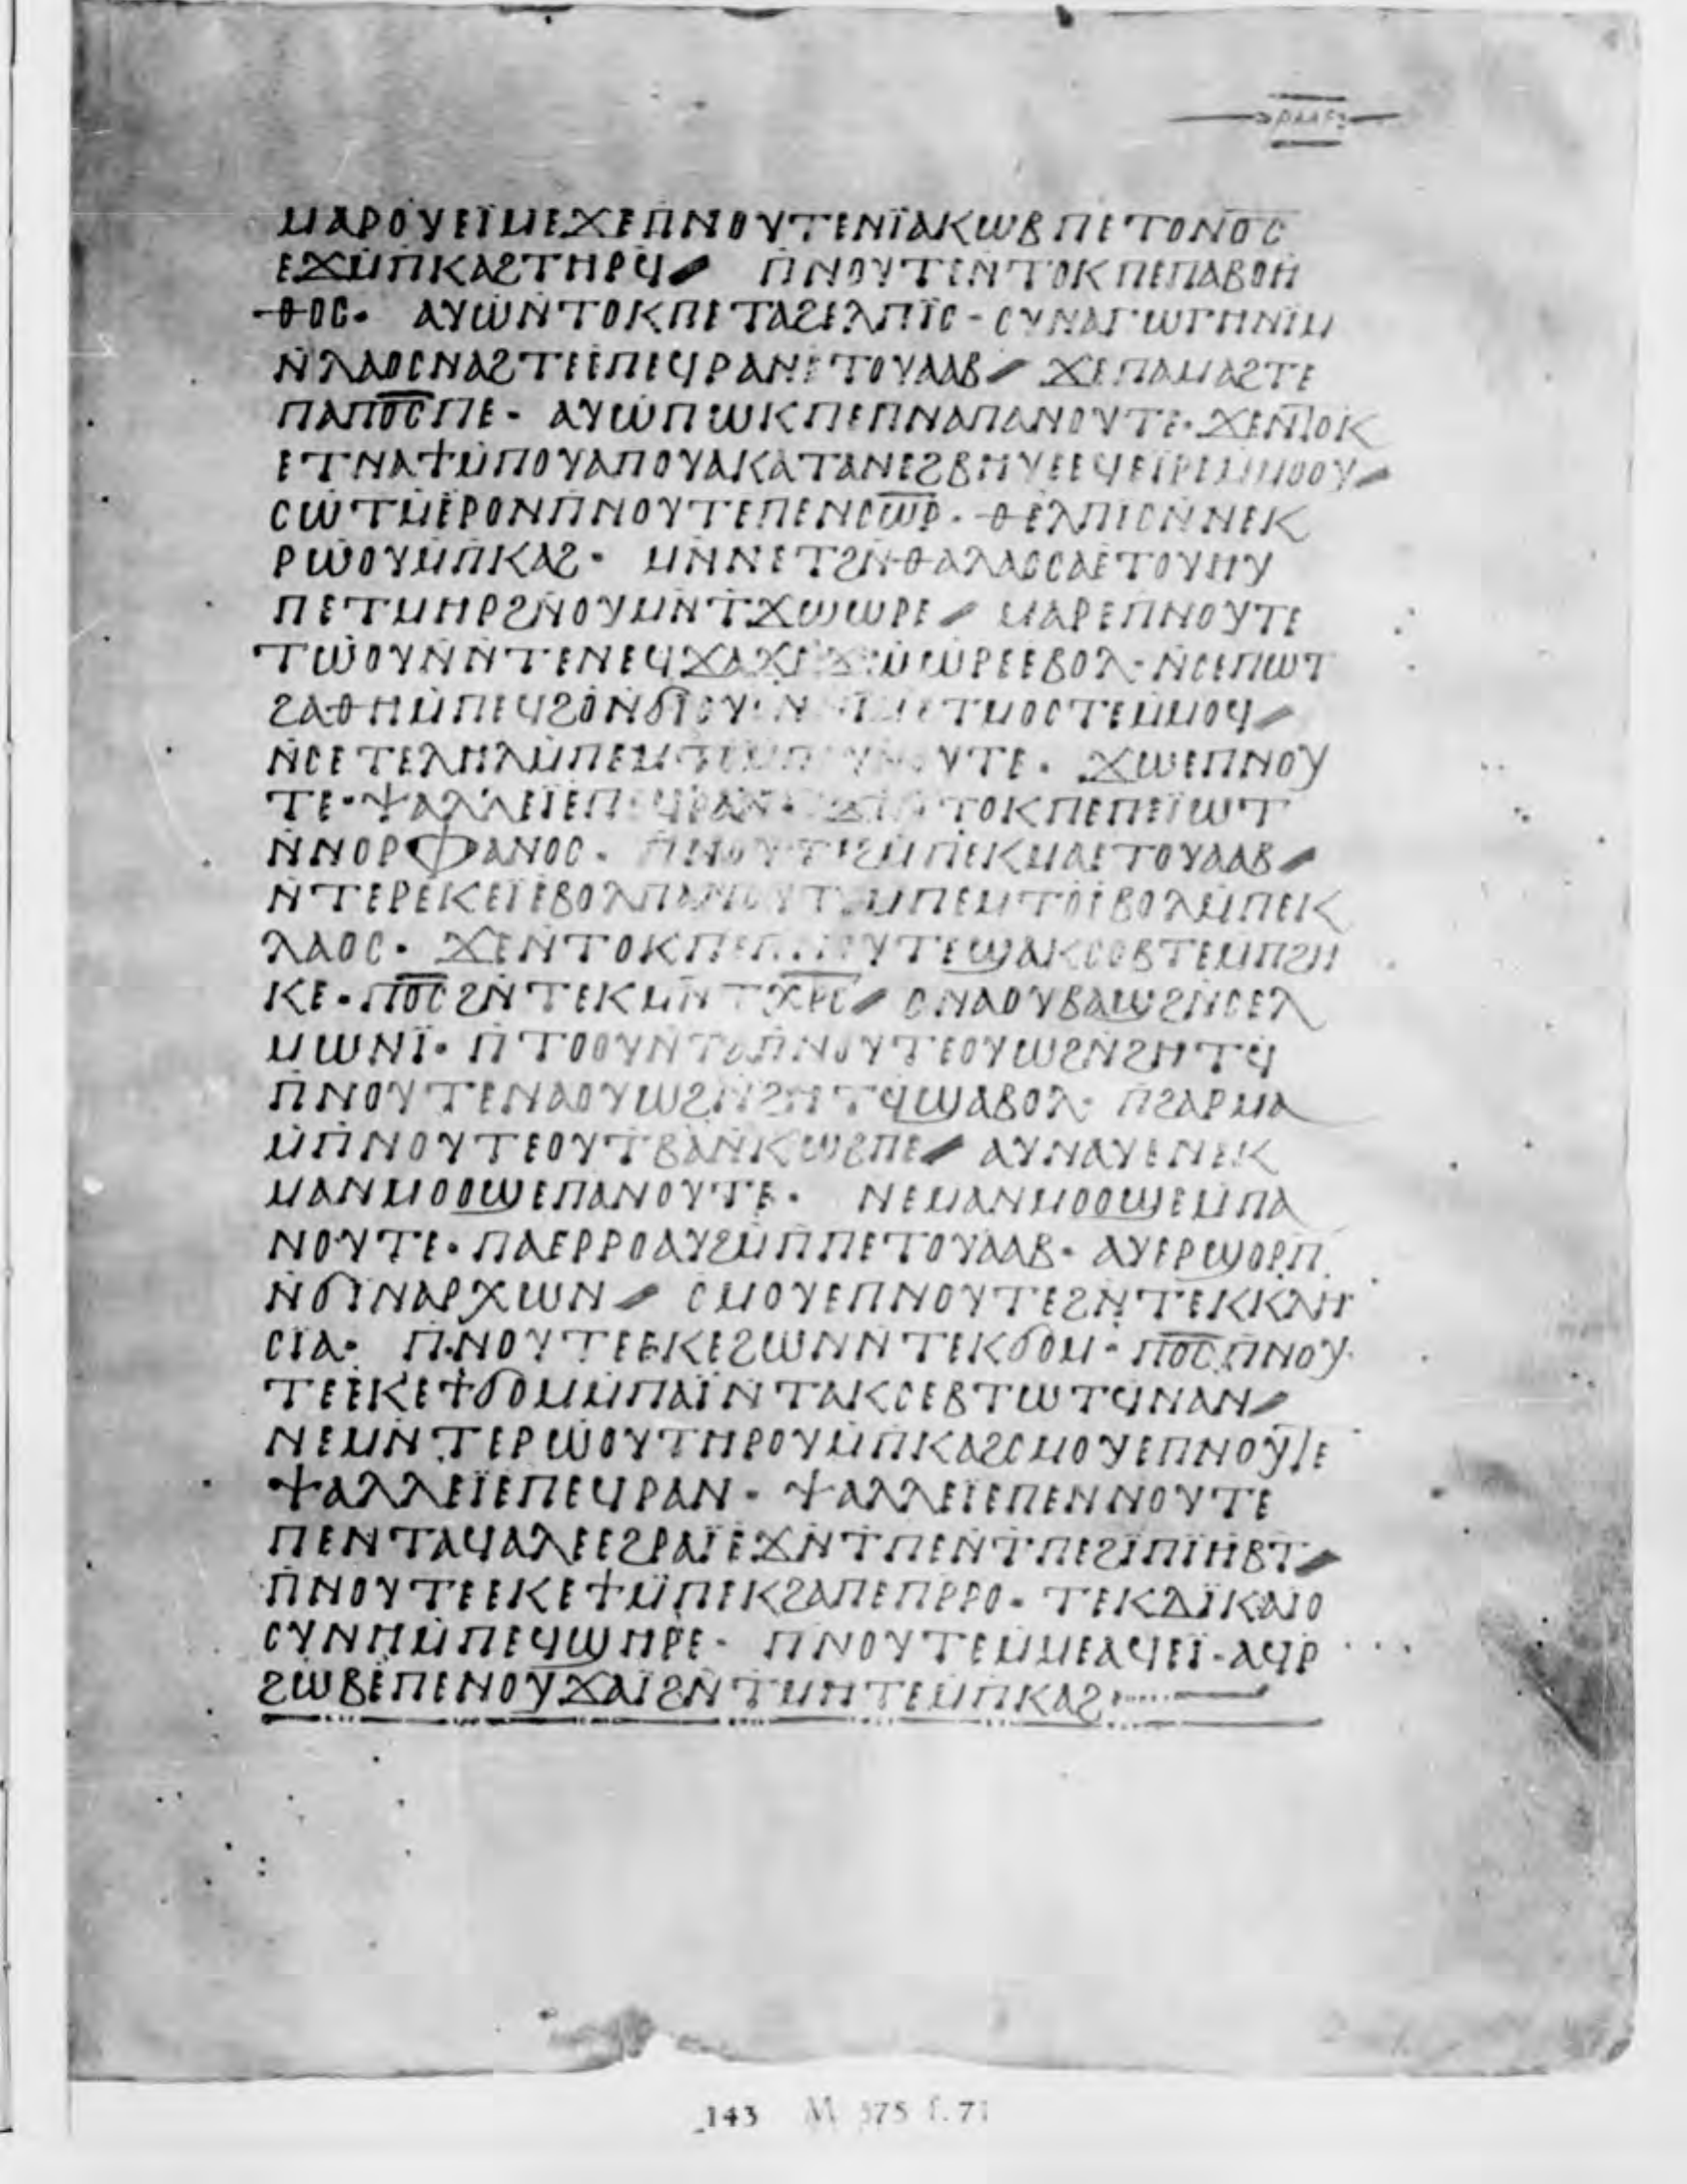 ⲣⲙⲅ
ⲙⲁⲣⲟⲩⲉⲓⲙⲉϫⲉⲡⲛⲟⲩⲧⲉⲛⲓ̈ⲁⲕⲱⲃⲡⲉⲧⲟⲛⲟ̅ⲥ̅
ⲉϫⲙ̇ⲡⲕⲁϩⲧⲏⲣϥ⸍ ⲡ̇ⲛⲟⲩⲧⲉⲛ̇ⲧⲟⲕⲡⲉⲡⲁⲃⲟⲏ
ⲑⲟⲥ· ⲁⲩⲱⲛ̇ⲧⲟⲕⲡⲉⲧⲁϩⲉⲗⲡⲓ̈ⲥ· ⲥⲩⲛⲁⲅⲱⲅⲏⲛⲓ̈ⲙ
ⲛ̇ⲗⲁⲟⲥⲛⲁϩⲧⲉⲉ̇ⲡⲉϥⲣⲁⲛⲉ̇ⲧⲟⲩⲁⲁⲃ⸍ ϫⲉⲡⲁⲙⲁϩⲧⲉ
ⲡⲁⲡⲟ̅ⲥ̅ⲡⲉ· ⲁⲩⲱ̇ⲡⲱⲕⲡⲉⲡⲛⲁⲡⲁⲛⲟⲩⲧⲉ· ϫⲉⲛ̇ⲧⲟⲕ
ⲉⲧⲛⲁϯⲙ̇ⲡⲟⲩⲁⲡⲟⲩⲁⲕⲁⲧⲁⲛⲉϩⲃⲏⲩⲉⲉϥⲉⲓⲣⲉⲙ̇ⲙⲟⲟⲩ⸍
ⲥⲱ̇ⲧⲙ̇ⲉ̇ⲣⲟⲛⲡ̇ⲛⲟⲩⲧⲉⲡⲉⲛⲥ̅ⲱ̅ⲣ̅· ⲑⲉⲗⲡⲓⲥⲛ̇ⲛⲉⲕ
ⲣⲱ̇ⲟⲩⲙ̇ⲡ̇ⲕⲁϩ· ⲙⲛ̇ⲛⲉⲧϩⲛ̇ⲑⲁⲗⲁⲥⲥⲁⲉ̇ⲧⲟⲩⲏⲩ
ⲡⲉⲧⲙⲏⲣϩⲛ̇ⲟⲩⲙⲛ̇ⲧ̇ϫⲱⲱⲣⲉ⸍ ⲙⲁⲣⲉⲡⲛⲟⲩⲧⲉ
ⲧⲱ̇ⲟⲩⲛⲛ̇ⲧⲉⲛⲉϥϫⲁϫⲉ ϫⲱ̇ⲱ̇ⲣⲉⲉⲃⲟⲗ· ⲛ̇ⲥⲉⲡⲱⲧ
ϩⲁⲑⲏⲙ̇ⲡⲉϥϩⲟⲛ̇ϭⲓⲟⲩⲟⲛ ⲉⲧⲙⲟⲥⲧⲉⲙ̇ⲙⲟϥ⸍
ⲛ̇ⲥⲉⲧⲉⲗⲏⲗⲙ̇ⲡⲉⲙⲧⲟ ⲛⲟⲩⲧⲉ· ϫⲱⲉⲡⲛⲟⲩ
ⲧⲉ· ⲯⲁⲗⲗⲉⲓ̈ⲉⲡⲉϥⲣⲁⲛ· ϫⲉⲛ̇ⲧⲟⲕⲡⲉⲡⲉⲓ̈ⲱⲧ
ⲛ̇ⲛⲟⲣⲫⲁⲛⲟⲥ· ⲡ̇ⲛⲟⲩⲧⲉϩⲙ̇ⲡⲉⲕⲙⲁⲉⲧⲟⲩⲁⲁⲃ⸍
ⲛ̇ⲧⲉⲣⲉⲕⲉⲓ̈ⲉ̇ⲃⲟⲗⲡⲁⲛⲟⲩⲧⲉⲙⲡⲉⲙⲧⲟⲉ̇ⲃⲟⲗⲙ̇ⲡⲉⲕ
ⲗⲁⲟⲥ· ϫⲉⲛⲧⲟⲕⲡⲉⲡ…ⲛⲟⲩⲧⲉϣⲁⲕⲥⲟⲃⲧⲉⲙⲡϩⲏ
ⲕⲉ· ⲡⲟ̅ⲥ̅ϩⲛ̇ⲧⲉⲕⲙⲛ̇ⲧⲭ̅ⲣ̅ⲥ̅⸍ ⲥⲛⲁⲟⲩⲃⲁϣϩⲛ̇ⲥⲉⲗ
ⲙⲱⲛⲓ̈· ⲡ̇ⲧⲟⲟⲩⲛ̇ⲧⲁⲡ̇ⲛⲟⲩⲧⲉⲟⲩⲱϩⲛ̇ϩⲏⲧϥ̇
ⲡ̇ⲛⲟⲩⲧⲉⲛⲁⲟⲩⲱϩⲛ̇ϩⲏⲧϥ̇ϣⲁⲃⲟⲗ· ⲡ̇ϩⲁⲣⲙⲁ
ⲙ̇ⲡ̇ⲛⲟⲩⲧⲉⲟⲩⲧ̇ⲃⲁⲛ̇ⲕⲱϩⲡⲉ⸍ ⲁⲩⲛⲁⲩⲉⲛⲉⲕ
ⲙⲁⲛⲙⲟⲟϣⲉⲡⲁⲛⲟⲩⲧⲉ· ⲛⲉⲙⲁⲛⲙⲟⲟϣⲉⲙ̇ⲡⲁ
ⲛⲟⲩⲧⲉ· ⲡⲁⲉⲣⲣⲟⲁⲩϩⲙ̇ⲡ̇ⲡⲉⲧⲟⲩⲁⲁⲃ· ⲁⲩⲉⲣϣⲟⲣⲡ̇
ⲛ̇ϭⲓ̈ⲛⲁⲣⲭⲱⲛ⸍ ⲥⲙⲟⲩⲉⲡⲛⲟⲩⲧⲉϩⲛ̇ⲧⲉⲕⲕⲗⲏ
ⲥⲓ̈ⲁ· ⲡ̇ⲛⲟⲩⲧⲉⲉ̇ⲕⲉϩⲱⲛⲛ̇ⲧⲉⲕϭⲟⲙ· ⲡⲟ̅ⲥ̅ⲡ̇ⲛⲟⲩ
ⲧⲉⲉ̇ⲕⲉϯϭⲟⲙⲙ̇ⲡⲁⲓ̈ⲛ̇ⲧⲁⲕⲥⲉⲃⲧⲱⲧϥ̇ⲛⲁⲛ⸍
ⲛⲉⲙⲛ̇ⲧⲉⲣⲱ̇ⲟⲩⲧⲏⲣⲟⲩⲙ̇ⲡ̇ⲕⲁϩⲥⲙⲟⲩⲉⲡⲛⲟⲩⲧⲉ
ⲯⲁⲗⲗⲉⲓ̈ⲉⲡⲉϥⲣⲁⲛ· ⲯⲁⲗⲗⲉⲓ̈ⲉⲡⲉⲛⲛⲟⲩⲧⲉ
ⲡⲉⲛⲧⲁϥⲁⲗⲉⲉϩⲣⲁⲓ̈ⲉ̇ϫⲛ̇ⲧ̇ⲡⲉⲛ̇ⲧ̇ⲡⲉϩⲓ̈ⲡⲓ̈ⲏⲃⲧ̇⸍
ⲡ̇ⲛⲟⲩⲧⲉⲉⲕⲉϯⲙ̇ⲡⲉⲕϩⲁⲡⲉⲡⲣ̇ⲣⲟ· ⲧⲉⲕⲇⲓ̈ⲕⲁⲓⲟ
ⲥⲩⲛⲏⲙ̇ⲡⲉϥϣⲏⲣⲉ· ⲡⲛⲟⲩⲧⲉⲙ̇ⲙⲉⲁϥⲉⲓ̈· ⲁϥⲣ̇
ϩⲱⲃⲉ̇ⲡⲉⲛⲟⲩϫⲁⲓ̈ϩⲛ̇ⲧⲙⲏⲧⲉⲙ̇ⲡⲕⲁϩ
143 M 575 f. 71